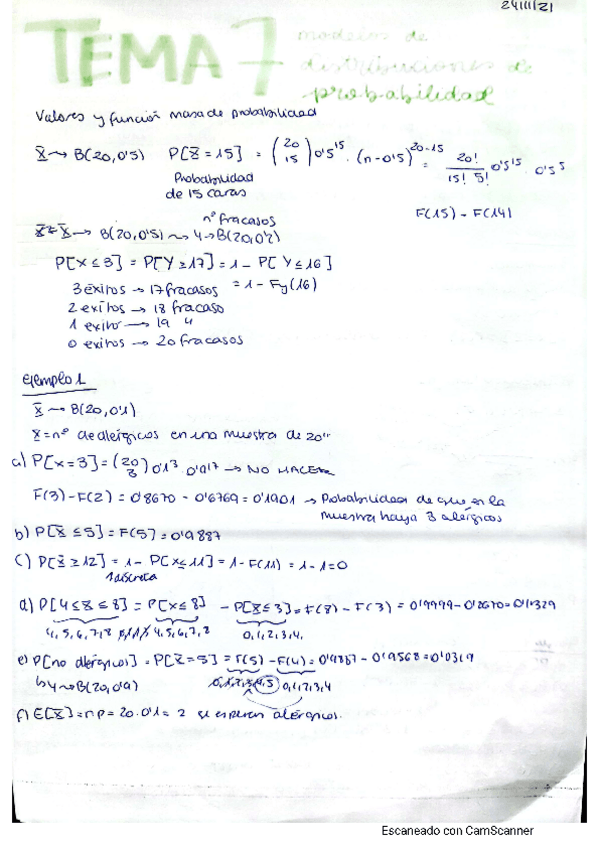 24/11/21
TEMA 7 modelos de
distribuciones de
probabilidad
Valores y función masa de probabilidad
X → B(20,0'5) P[X = 15] = (20 15) 0'5^15 · (n-0'5)^20-15 = 20! / 15! 5! 0'5^15 · 0'5^5
Probabilidad
de 15 caras
F(15) - F(14)
nº fracasos
X → B(20,0'5) → Y → B(20,0'5)
P[X ≤ 3] = P[Y ≥ 17] = 1 - P[Y ≤ 16]
3 éxitos → 17 fracasos = 1 - Fy(16)
2 exitos → 18 fracaso
1 exito → 19 "
0 exitos → 20 fracasos
Ejemplo 1
X → B(20,0'1)
X = nº de alérgicos en una muestra de 20"
a) P[X = 3] = (20 3) 0'1^3 0'9^17 → NO HACER
F(3) - F(2) = 0'8670 - 0'6769 = 0'1901 → Probabilidad de que en la
muestra haya 3 alérgicos
b) P[X ≤ 5] = F(5) = 0'9887
c) P[X ≥ 12] = 1 - P[X ≤ 11] = 1 - F(11) = 1 - 1 = 0
discreta
d) P[4 ≤ X ≤ 8] = P[X ≤ 8] - P[X ≤ 3] = F(8) - F(3) = 0'9999 - 0'8670 = 0'1329
4, 5, 6, 7, 8 4, 5, 6, 7, 8 0, 1, 2, 3, 4,
e) P[no alérgicos] = P[X = 5] = F(5) - F(4) = 0'9887 - 0'9568 = 0'0319
↳ Y → B(20,0'9) 0, 1, 2, 3, 4, 5 0, 1, 2, 3, 4
f) E[X] = np = 20 · 0'1 = 2 se esperan alérgicos.
Escaneado con CamScanner